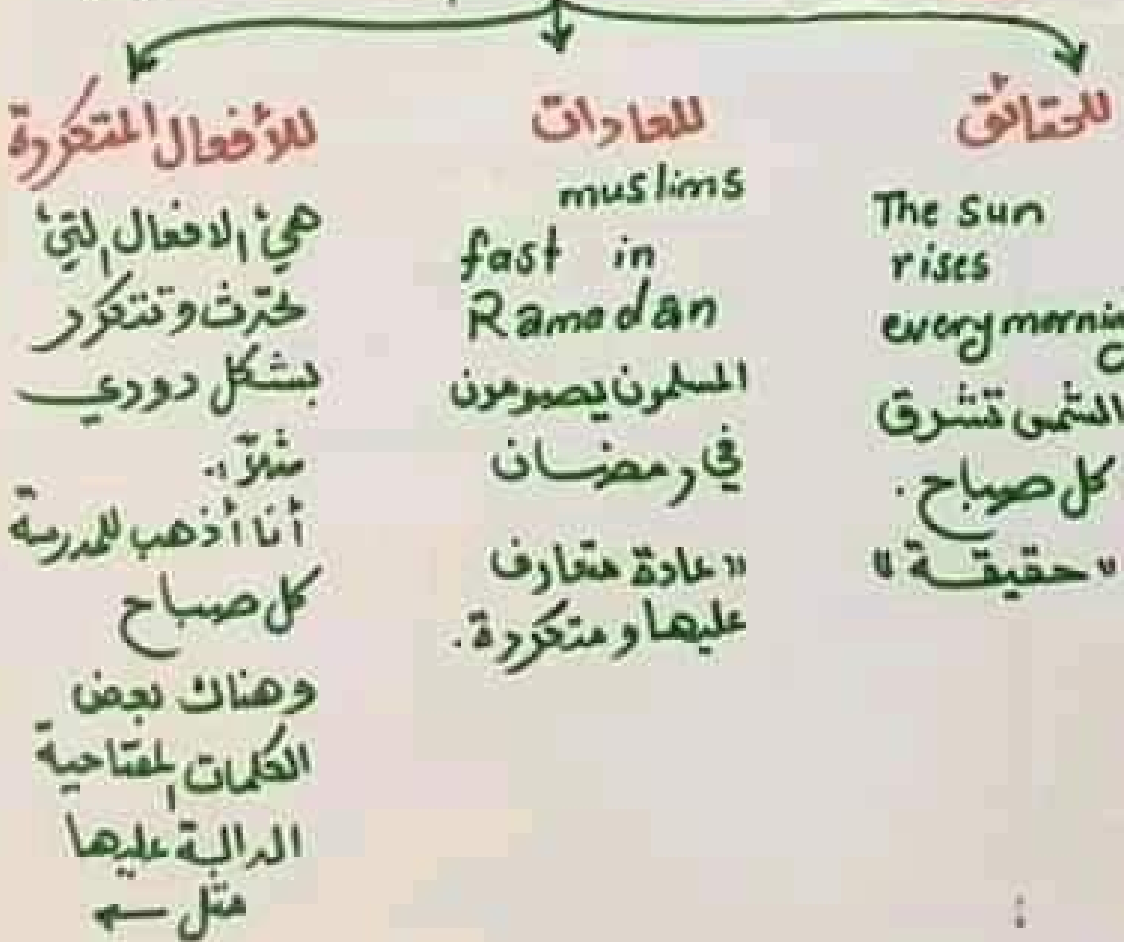 للحقائق
The sun
rises
every morning
الشمس تشرق
كل صباح.
"حقيقة"
للعادات
muslims
fast in
Ramadan
المسلمون يصومون
في رمضان
"عادة متعارف
عليها ومتكررة.
للأفعال المتكررة
هي الافعال التي
تحدث وتتكرر
بشكل دوري
مثلاً:
أنا أذهب للمدرسة
كل صباح
وهناك بعض
الكلمات المفتاحية
الدالة عليها
مثل ←